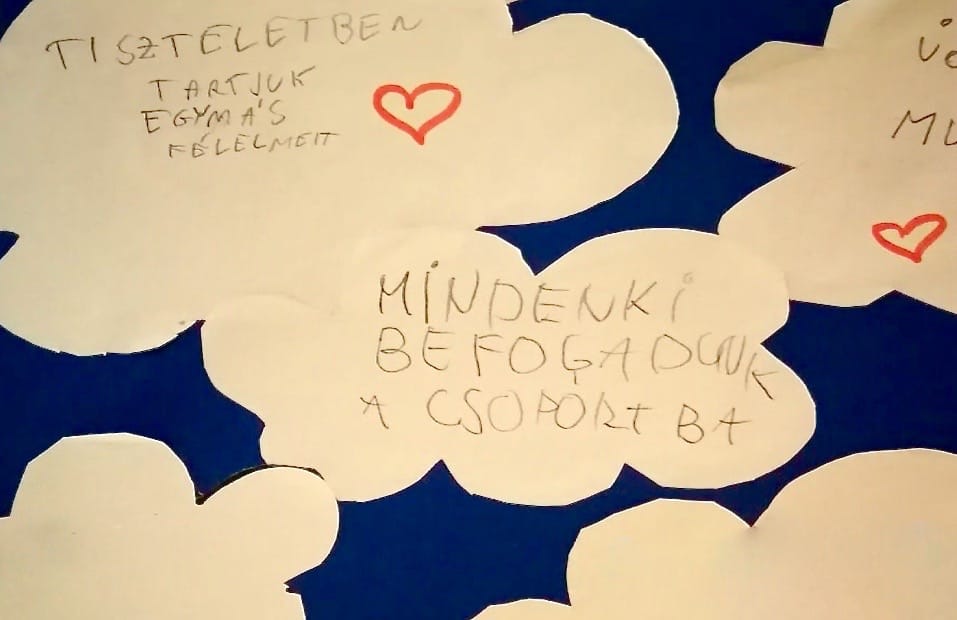 TISZTELETBEN
TARTJUK
EGYMÁS
FÉLELMEIT
MINDENKI
BEFOGADUNK
A CSOPORTBA